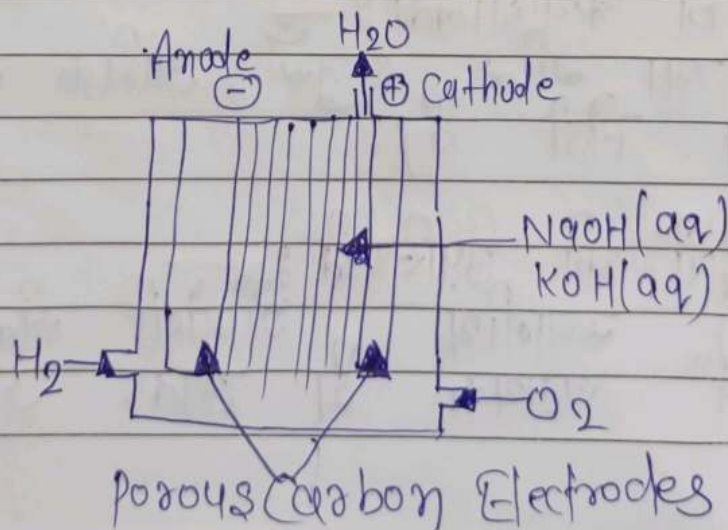 H2O
Anode
⊖ ⊕ Cathode
NaOH(aq)
KOH(aq)
H2
O2
Porous Carbon Electrodes